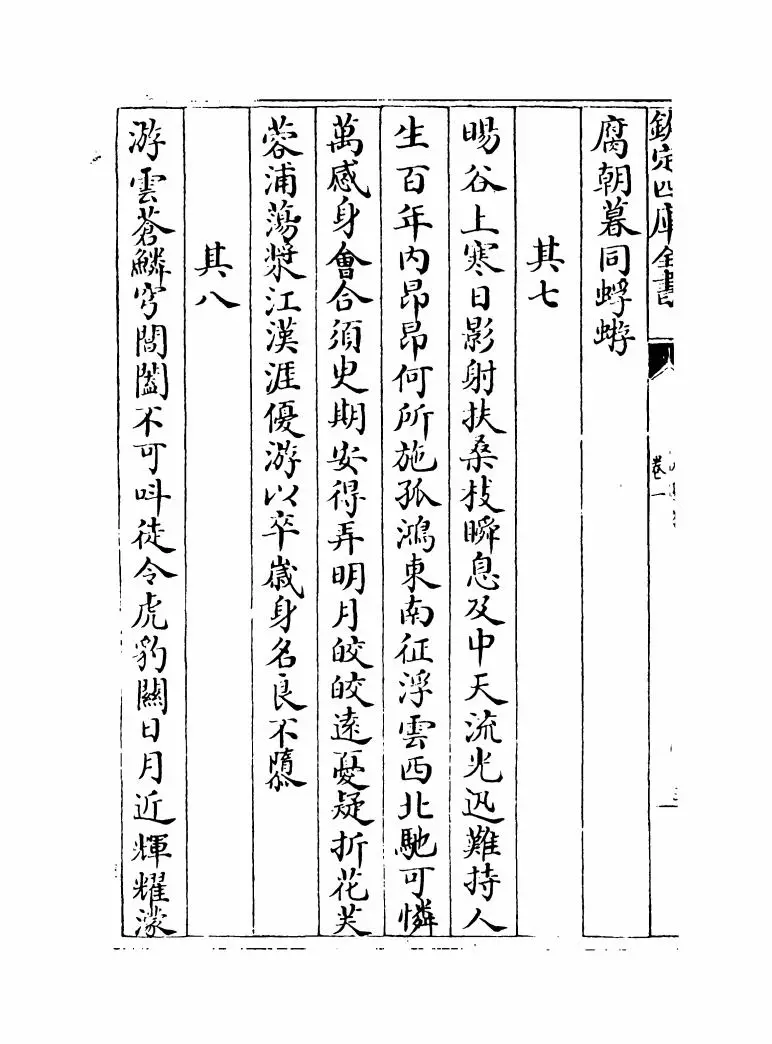 欽定四庫全書
卷一
腐朝暮同蜉蝣
其七
暘谷上寒日影射扶桑枝瞬息及中天流光迅難持人
生百年內昂昂何所施孤鴻東南征浮雲西北馳可憐
萬感身會合須臾期安得弄明月皎皎遠憂疑折花芙
蓉浦蕩槳江漢涯優游以卒歲身名良不隳
其八
游雲蒼鱗穹閶闔不可呌徒令虎豹關日月近輝耀濛